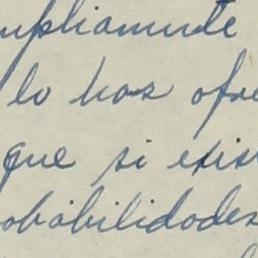 mpliamente
lo has ofre
que si exis
obabilidades